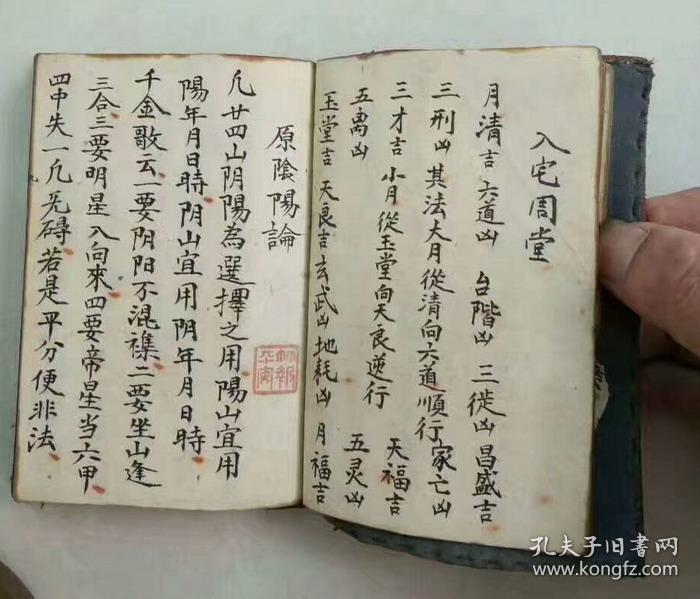 入宅周堂
月清吉 六道凶 台階凶 三徙凶 昌盛吉
三刑凶 其法大月從清向六道順行 家亡凶
三才吉 小月從玉堂向天良逆行 天福吉
五离凶 五灵凶
玉堂吉 天良吉 玄武凶 地耗凶 月福吉
原陰陽論
凢廿四山阴陽為選擇之用陽山宜用
陽年月日時阴山宜用阴年月日時
千金歌云一要阴阳不混襍二要坐山逢
三合三要明星入向來四要帝星当六甲
四中失一凢无碍若是平分便非法
孔夫子旧书网
www.kongfz.com